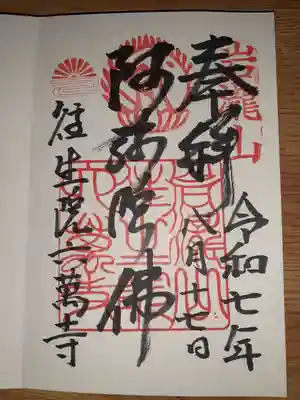 奉拝
令和七年
八月十七日
阿弥陀佛
往生院六萬寺
岩瀧山